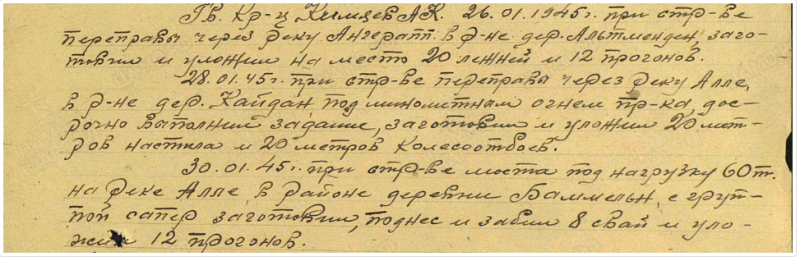 Гв. Кр-ц Кимяев А.К. 26.01.1945г. при стр-ве
переправы через реку Ангерапп в р-не дер. Альтменден, заго-
товил и уложил на место 20 лежней и 12 прогонов.
28.01.45г. при стр-ве переправы через реку Алле,
в р-не дер. Кайдан под минометным огнем пр-ка, дос-
рочно выполнил задание, заготовил и уложил 20 мет-
ров настила и 20 метров колесоотбоев.
30.01.45г. при стр-ве моста под нагрузку 60т.
на реке Алле, в районе деревни Баммельн, с груп-
пой сапер заготовил, поднес и забил 8 свай и уло-
жил 12 прогонов.